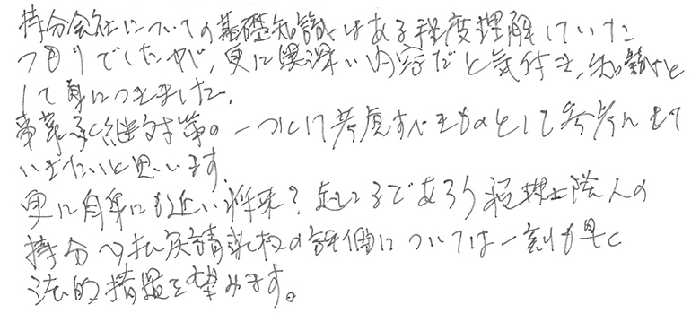 持分会社についての基礎知識はある程度理解していた
つもりでしたが、更に奥深い内容だと気付き、知識と
して身につきました。
事業承継対策の一つとして考慮すべきものとして参考にさせて
いただきたいと思います。
更に自身にも近い将来?起こるであろう税理士法人の
持分の払戻請求権の評価については一刻も早く
法的措置を望みます。